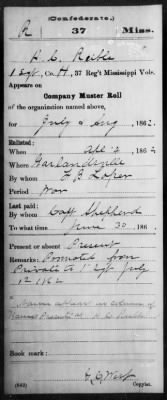 (Confederate.)
R 37 Miss.
1 Sgt, Co. H, 37 Reg't Mississippi Vols.
Appears on
Company Muster Roll
of the organization named above,
for July & Aug, 1862.
Enlisted:
When 1862
Where Garlandville
By whom Loper
Period War
Last paid:
By whom Capt Shepherd
To what time June 30, 186
Present or absent Present
Remarks: Promoted from
Private to 1 Sgt July
12 1862
Book mark:
(642) Copyist.